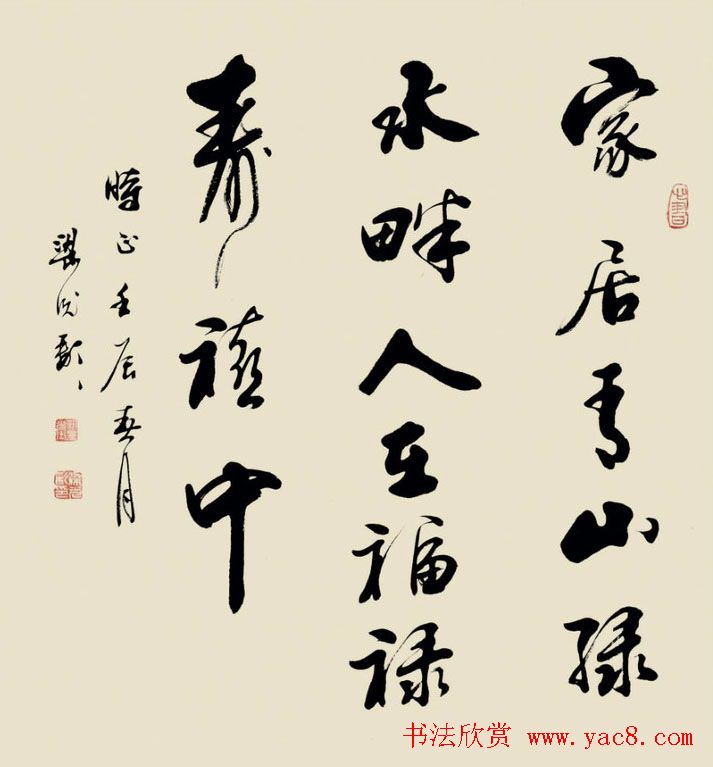 家居青山绿
水畔人在福禄
寿禧中
時壬辰春月
梁
书法欣赏 www.yac8.com